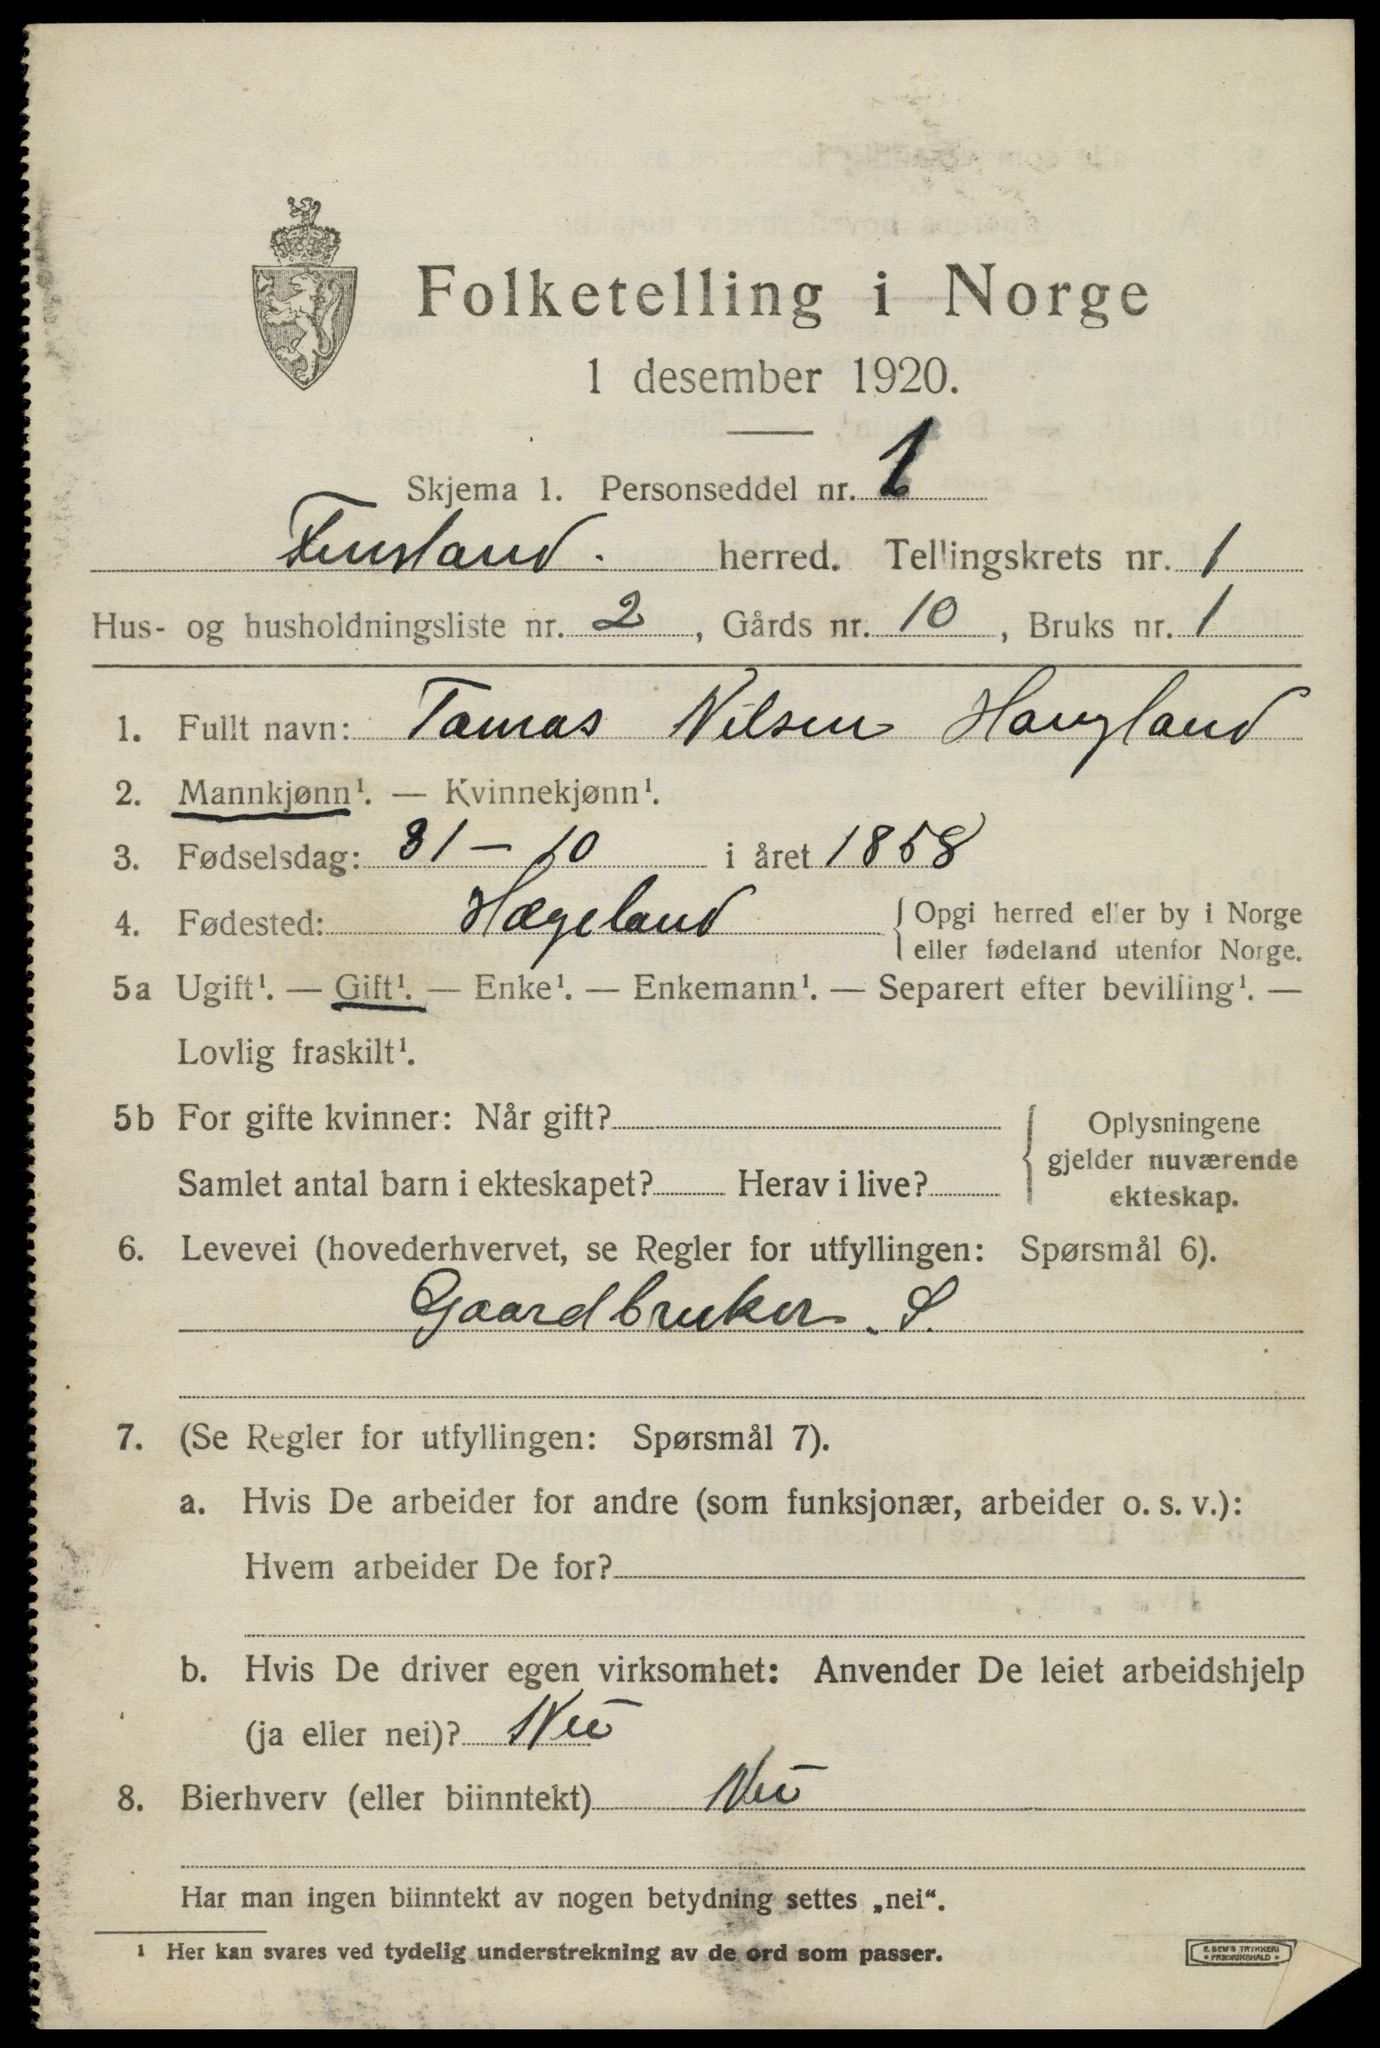 Folketelling i Norge
1 desember 1920.
Skjema 1. Personseddel nr. 1
Finsland. herred. Tellingskrets nr. 1
Hus- og husholdningsliste nr. 2, Gårds nr. 10, Bruks nr. 1
1. Fullt navn: Tamas Nilsen Haugland
2. Mannkjønn¹. — Kvinnekjønn¹.
3. Fødselsdag: 31 – 10 i året 1858
4. Fødested: Hægeland { Opgi herred eller by i Norge
eller fødeland utenfor Norge.
5a Ugift¹. — Gift¹. — Enke¹. — Enkemann¹. — Separert efter bevilling¹. —
Lovlig fraskilt¹.
5b For gifte kvinner: Når gift?
Samlet antal barn i ekteskapet? Herav i live?
Oplysningene
gjelder nuværende
ekteskap.
6. Levevei (hovederhvervet, se Regler for utfyllingen: Spørsmål 6).
Gaardbruker. S.
7. (Se Regler for utfyllingen: Spørsmål 7).
a. Hvis De arbeider for andre (som funksjonær, arbeider o. s. v.):
Hvem arbeider De for?
b. Hvis De driver egen virksomhet: Anvender De leiet arbeidshjelp
(ja eller nei)? Nei
8. Bierhverv (eller biinntekt) Nei
Har man ingen biinntekt av nogen betydning settes „nei“.
¹ Her kan svares ved tydelig understrekning av de ord som passer.
E. SEM'S TRYKKERI
FREDRIKSHALD